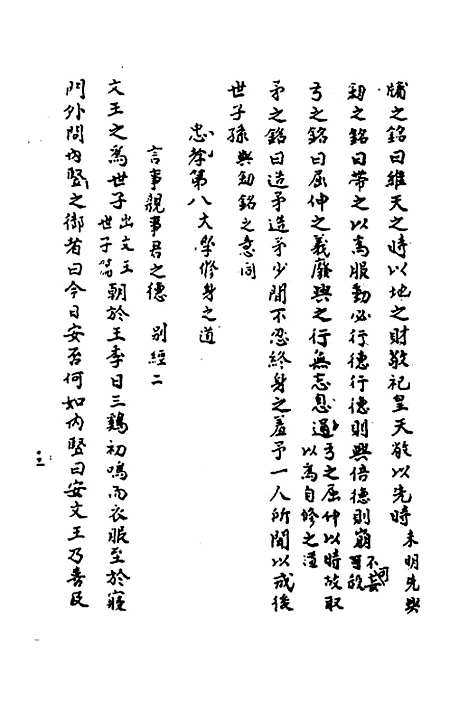 牖之銘曰維天之時以地之財敬祀皇天敬以先時未明先興
劍之銘曰帶之以為服動必行德行德則興倍德則崩不可
弓之銘曰屈伸之義廢興之行無忘自過弓之屈伸以時故取以為自修之道
矛之銘曰造矛造矛少間不忍終身之羞予一人所聞以戒後
世子孫與劍銘之意同
忠孝第八大學修身之道
言事親事君之德　別經二
文王之為世子出文王世子篇朝於王季日三鷄初鳴而衣服至於寢
門外問內豎之御者曰今日安否何如內豎曰安文王乃喜及